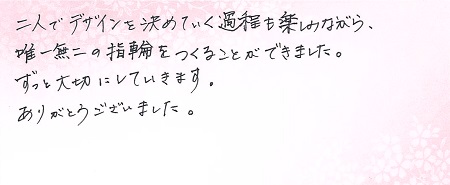 二人でデザインを決めていく過程も楽しみながら、
唯一無二の指輪をつくることができました。
ずっと大切にしていきます。
ありがとうございました。